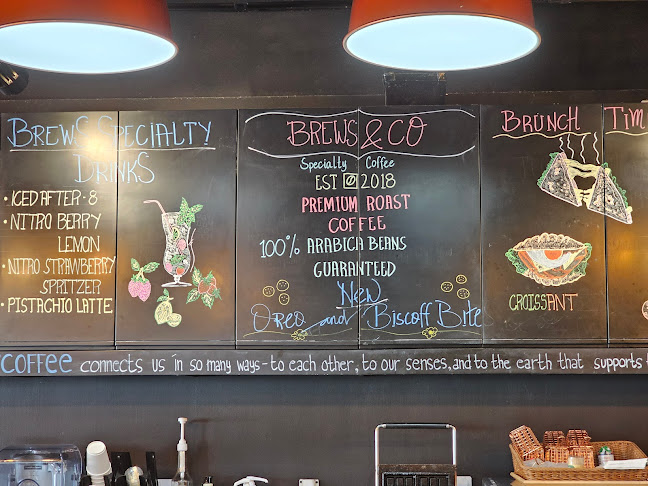 BREWS SPECIALTY
DRINKS
• ICED AFTER-8
• NITRO BERRY
LEMON
• NITRO STRAWBERRY
SPRITZER
• PISTACHIO LATTE
BREWS & CO
Specialty Coffee
EST 2018
PREMIUM ROAST
COFFEE
100% ARABICA BEANS
GUARANTEED
NEW
Oreo and Biscoff Bite
BRUNCH TIM
CROISSANT
COFFEE connects us in so many ways-to each other, to our senses, and to the earth that supports